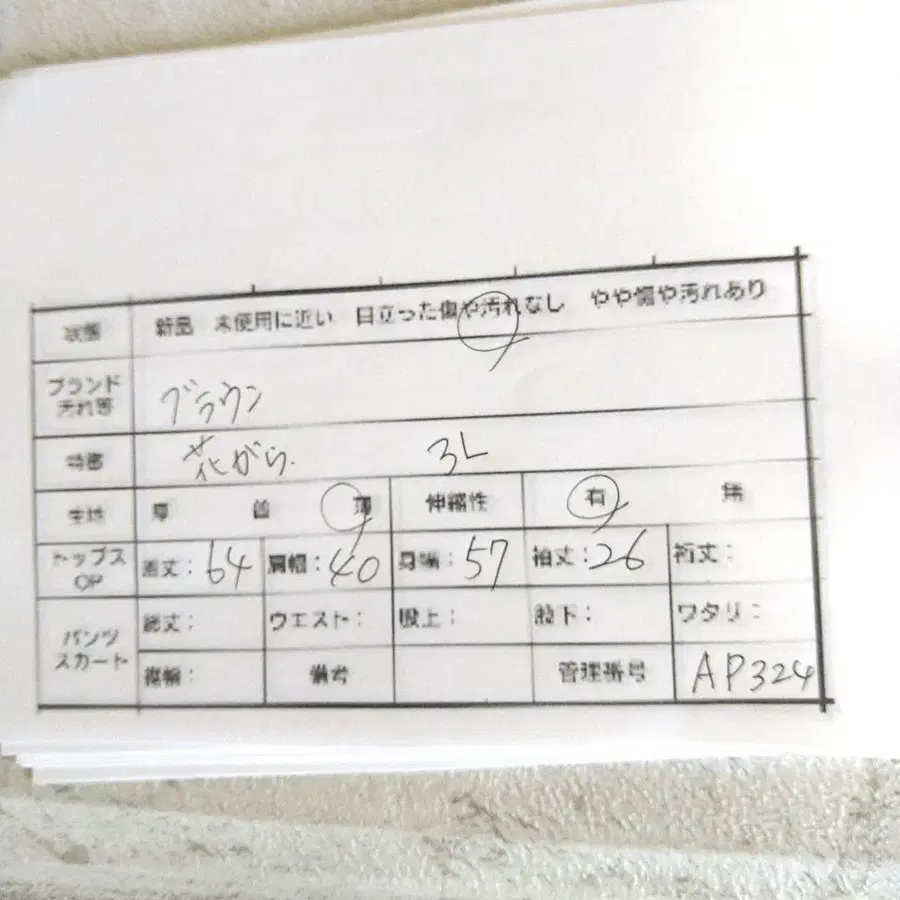 状態 新品 未使用に近い 目立った傷や汚れなし やや傷や汚れあり
ブランド
汚れ等 ブラウン
特徴 花がら. 3L
生地 厚 普 薄 伸縮性 有 無
トップス
OP 着丈：64 肩幅：40 身幅：57 袖丈：26 裄丈：
パンツ
スカート 総丈： ウエスト： 股上： 股下： ワタリ：
裾幅： 備考 管理番号 AP324